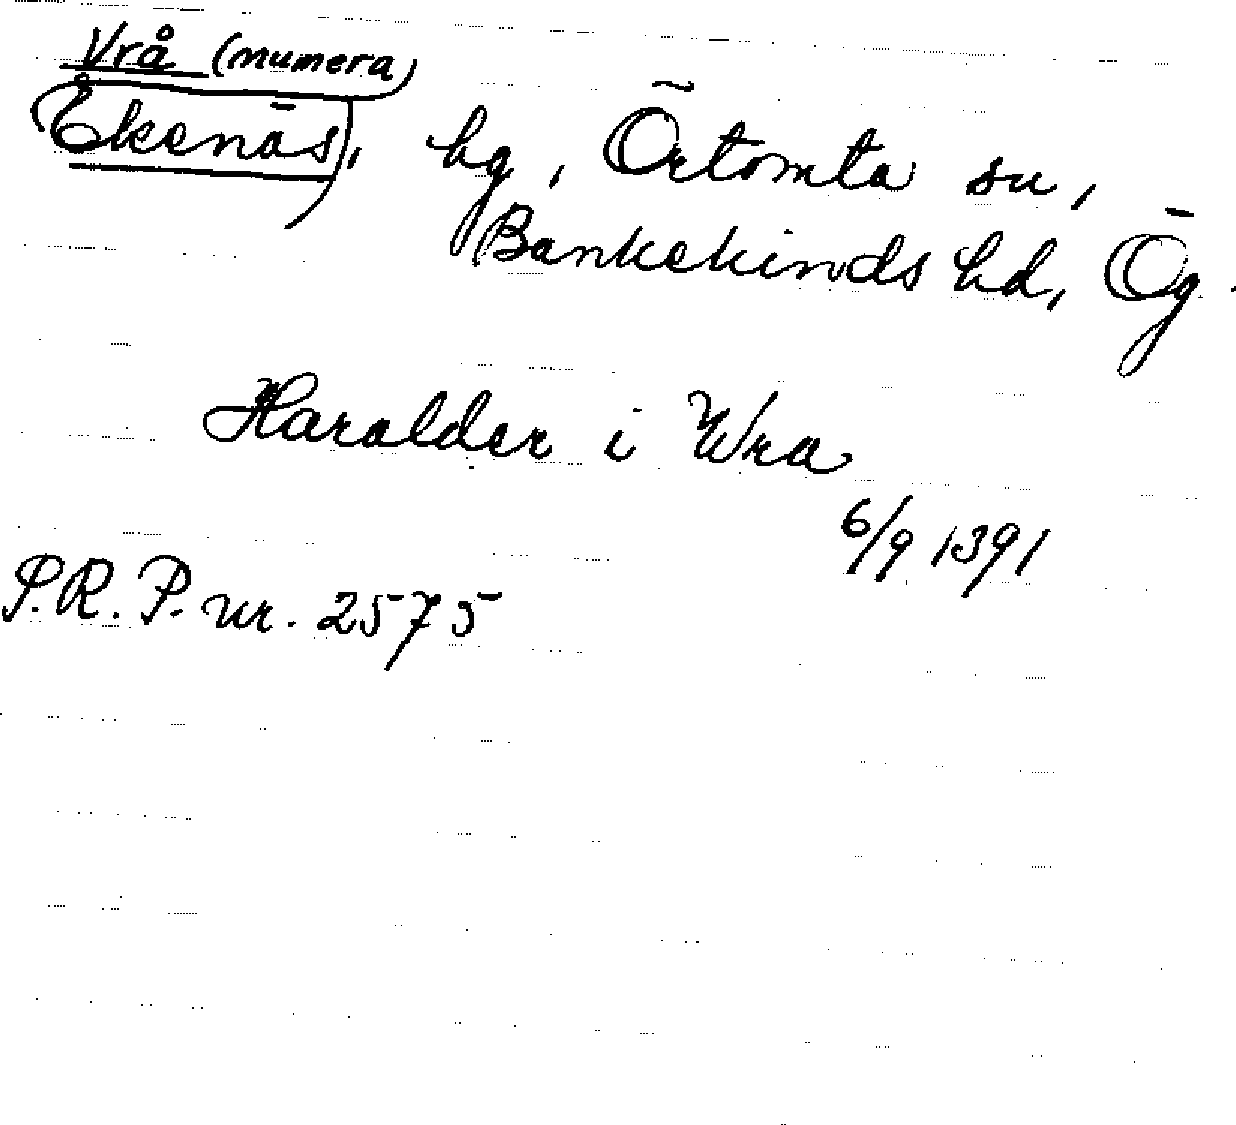 Vrå (numera
Ekenäs), hg, Örtomta sn,
Bankekinds hd, Ög.
Haralder i Wra
6/9 1391
S.R.P. nr. 2575